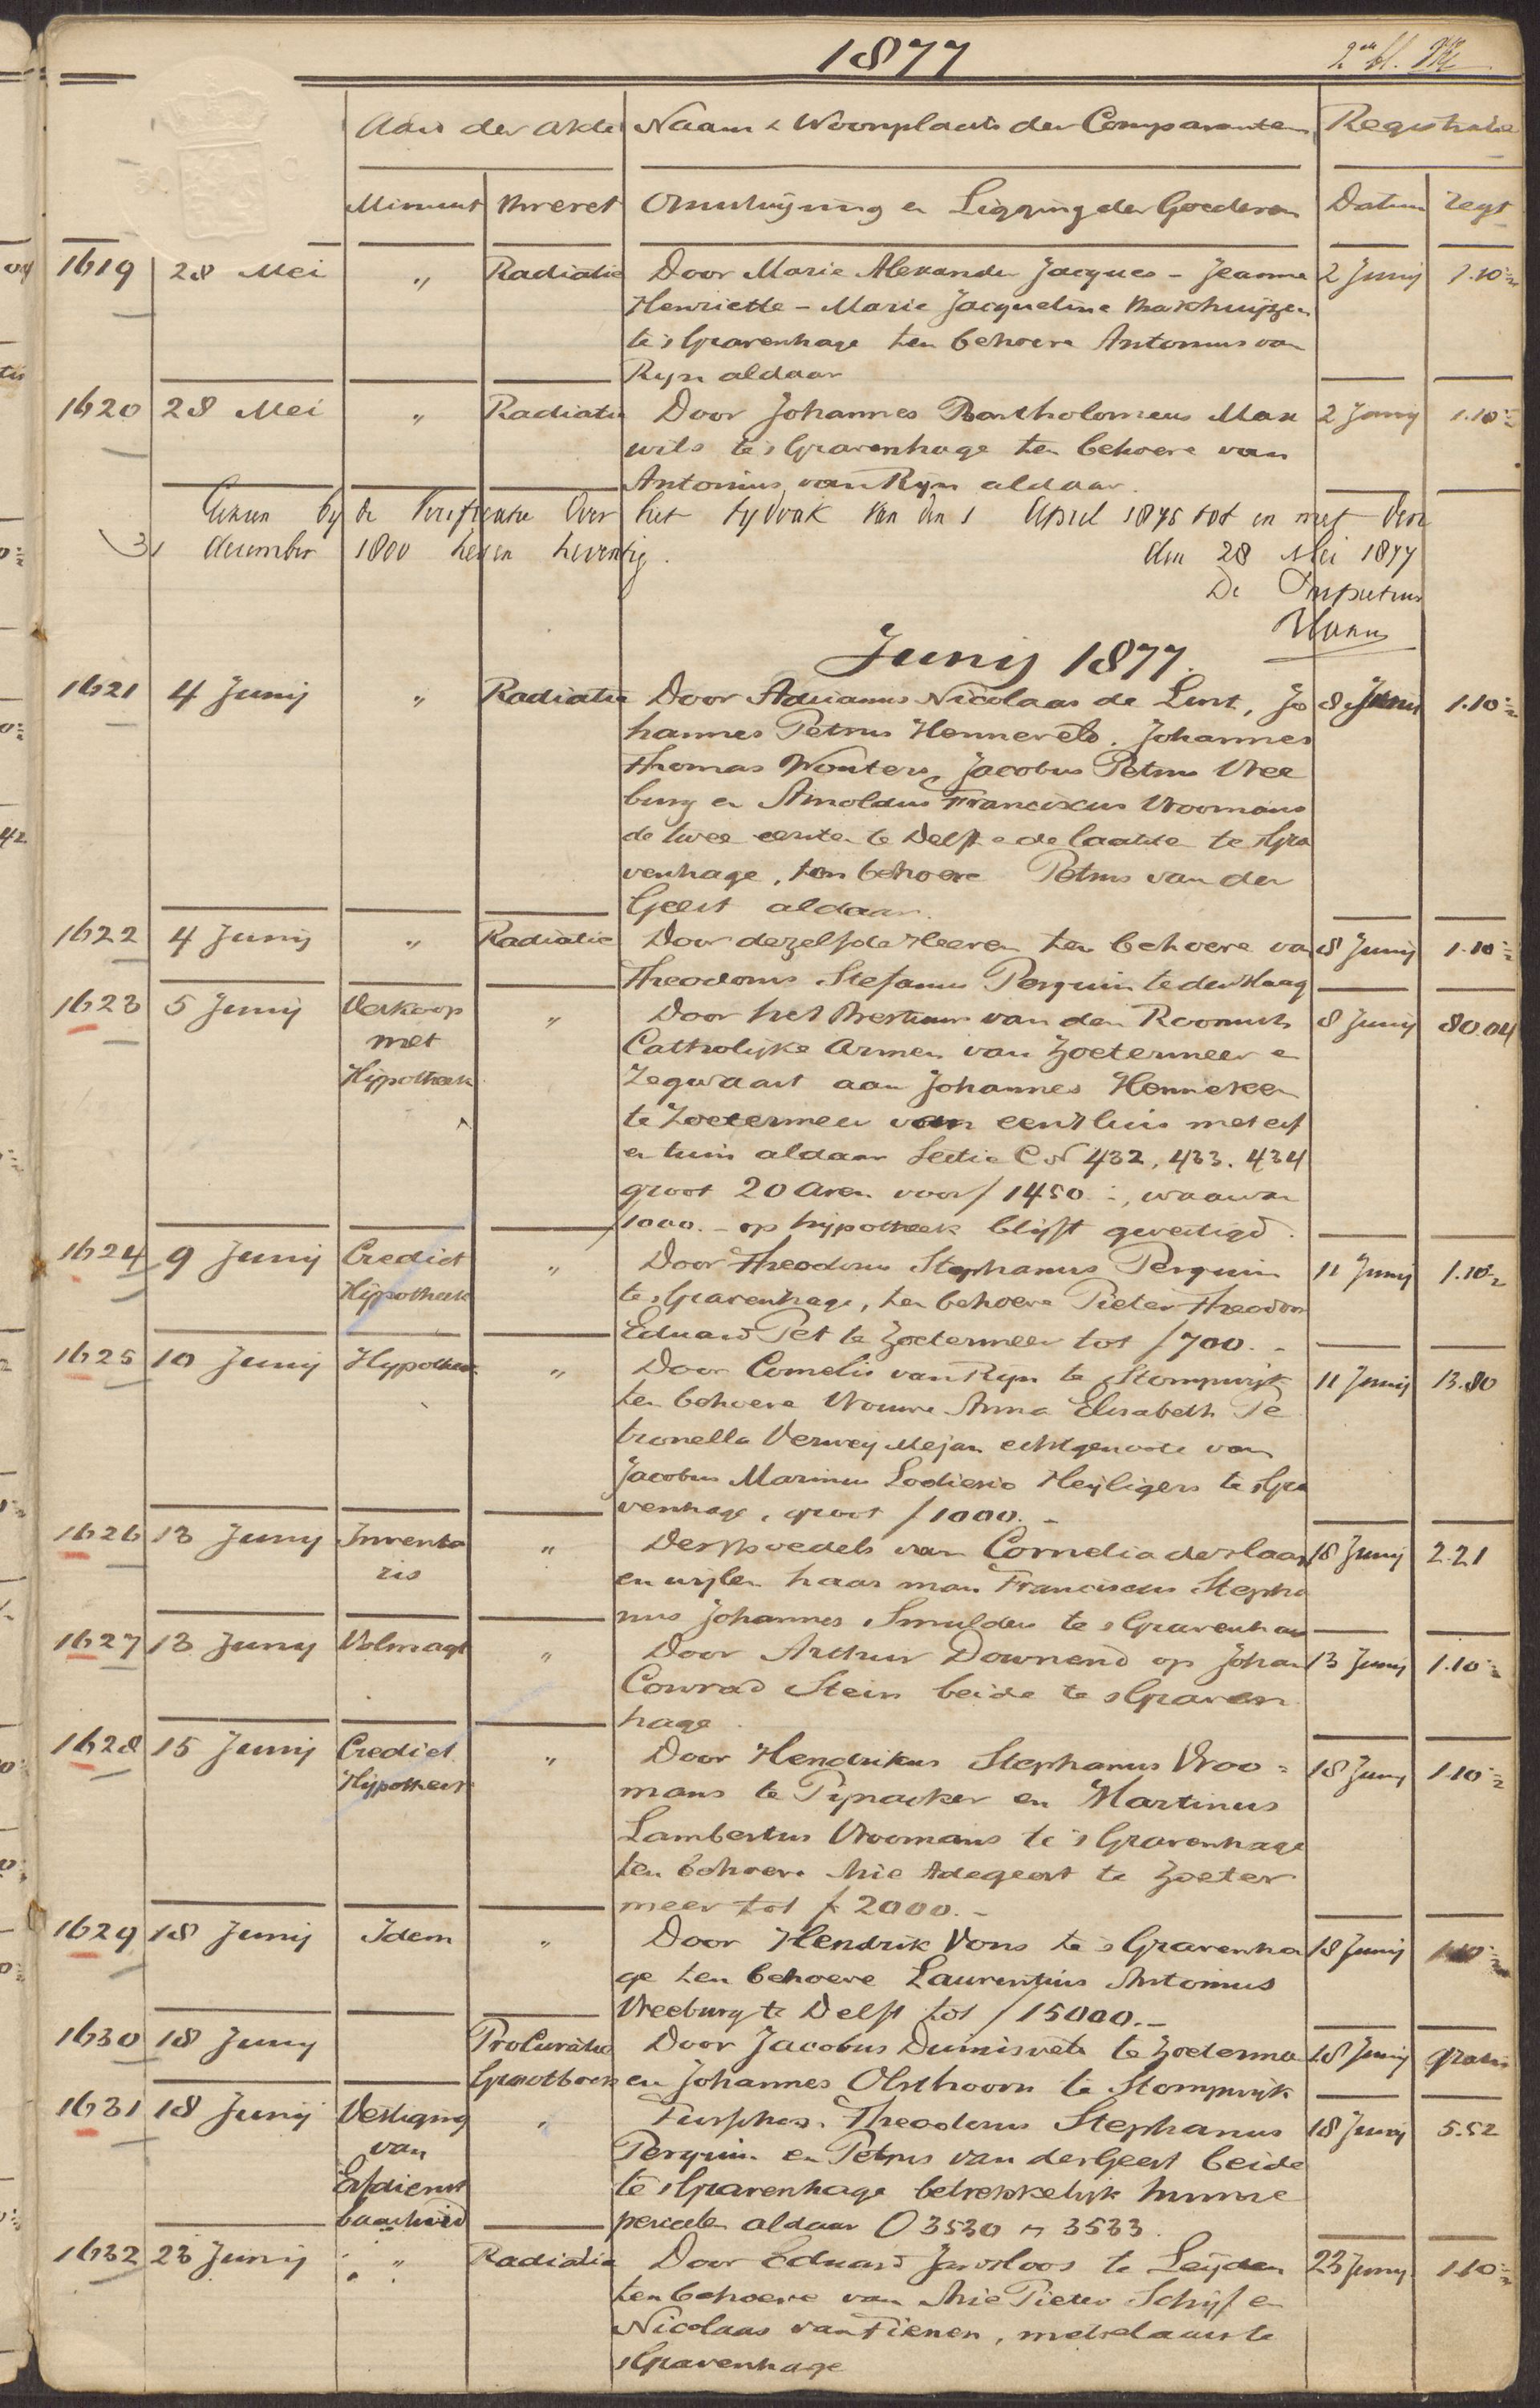 1877
2de bl.
Aard der Akte Naam & Woonplaats der Comparanten Registratie
Minuut Brevet Omschrijving en Ligging der Goederen Datum Regt
1619 28 Mei " Radiatie Door Marie Alexander Jacques - Jeanne 2 Junij 1.10½
Henriette - Marie Jacqueline Bakhuijzen
te 's Gravenhage ten behoeve Antonius van
Rijn aldaar
1620 28 Mei " Radiatie Door Johannes Bartholomeus Max 2 Junij 1.10½
wils te 's Gravenhage ten behoeve van
Antonius van Rijn aldaar.
Gezien by de Verificatie over het tydvak van den 1 April 1875 tot en met den
31 december 1800 zes en zeventig. den 28 Mei 1877
De Inspecteur
Junij 1877.
1621 4 Junij " Radiatie Door Adrianus Nicolaas de Lint, Jo 8 Junij 1.10½
hannes Petrus Henneveld, Johannes
Thomas Wouters, Jacobus Petrus Vree
burg en Arnoldus Franciscus Vroomans
de twee eersten te Delft en de laatste te 's Gra
venhage, ten behoeve Petrus van der
Geest aldaar.
1622 4 Junij " Radiatie Door dezelfde Heeren ten behoeve van 8 Junij 1.10½
Theodorus Stefanus Perquin te den Haag
1623 5 Junij Verkoop " Door het Bestuur van den Roomsch 8 Junij 80.04
met Catholijke Armen van Zoetermeer en
Hypotheek Zegwaart aan Johannes Henneken
te Zoetermeer van een Huis met erf
en tuin aldaar Sectie C No 432, 433. 434
groot 20 Aren voor ƒ 1450.-, waarvan
ƒ 1000.- op hypotheek blijft gevestigd.
1624 9 Junij Crediet " Door Theodorus Stephanus Perquin 11 Junij 1.10½
Hypotheek te 's Gravenhage, ten behoeve Pieter Theodoor
Eduard Pet te Zoetermeer tot ƒ 700.-
1625 10 Junij Hypotheek " Door Cornelis van Rijn te Stompwijk 11 Junij 13.80
ten behoeve Vrouwe Anna Elisabeth Pe
tronella Verweij Mejan echtgenoote van
Jacobus Marinus Lodierio Heyligers te 's Gra
venhage, groot ƒ 1000.-
1626 13 Junij Inventa " Des Boedels van Cornelia de Haas 18 Junij 2.21
ris en wijlen haar man Franciscus Stepha
nus Johannes Smulders te 's Gravenhage
1627 13 Junij Volmagt " Door Arthur Downend op Johan 13 Junij 1.10½
Conrad Stein beide te 's Graven
hage.
1628 15 Junij Crediet " Door Hendrikus Stephanus Vroo= 18 Junij 1.10½
Hypotheek mans te Pijnacker en Martinus
Lambertus Vroomans te 's Gravenhage
ten behoeve Arie Adegeest te Zoeter
meer tot ƒ 2000.-
1629 18 Junij Idem " Door Hendrik Vons te 's Gravenha 18 Junij 1.10½
ge ten behoeve Laurentius Antonius
Vreeburg te Delft tot ƒ 15000.-
1630 18 Junij Procuratie Door Jacobus Duinisveld te Zoeterme 18 Junij gratis
Grootboek en Johannes Olsthoorn te Stompwijk
1631 18 Junij Vestiging " Tusschen Theodorus Stephanus 18 Junij 5.52
van Perquin en Petrus van der Geest beide
Erfdienst te 's Gravenhage betrekkelijk hunne
baarheid perceelen aldaar O 3530 n 3533.
1632 23 Junij " Radiatie Door Eduard Javoloos te Leijden 23 Junij 1.10½
ten behoeve van Arie Pieter Schijf en
Nicolaas van Tienen, metselaars te
's Gravenhage